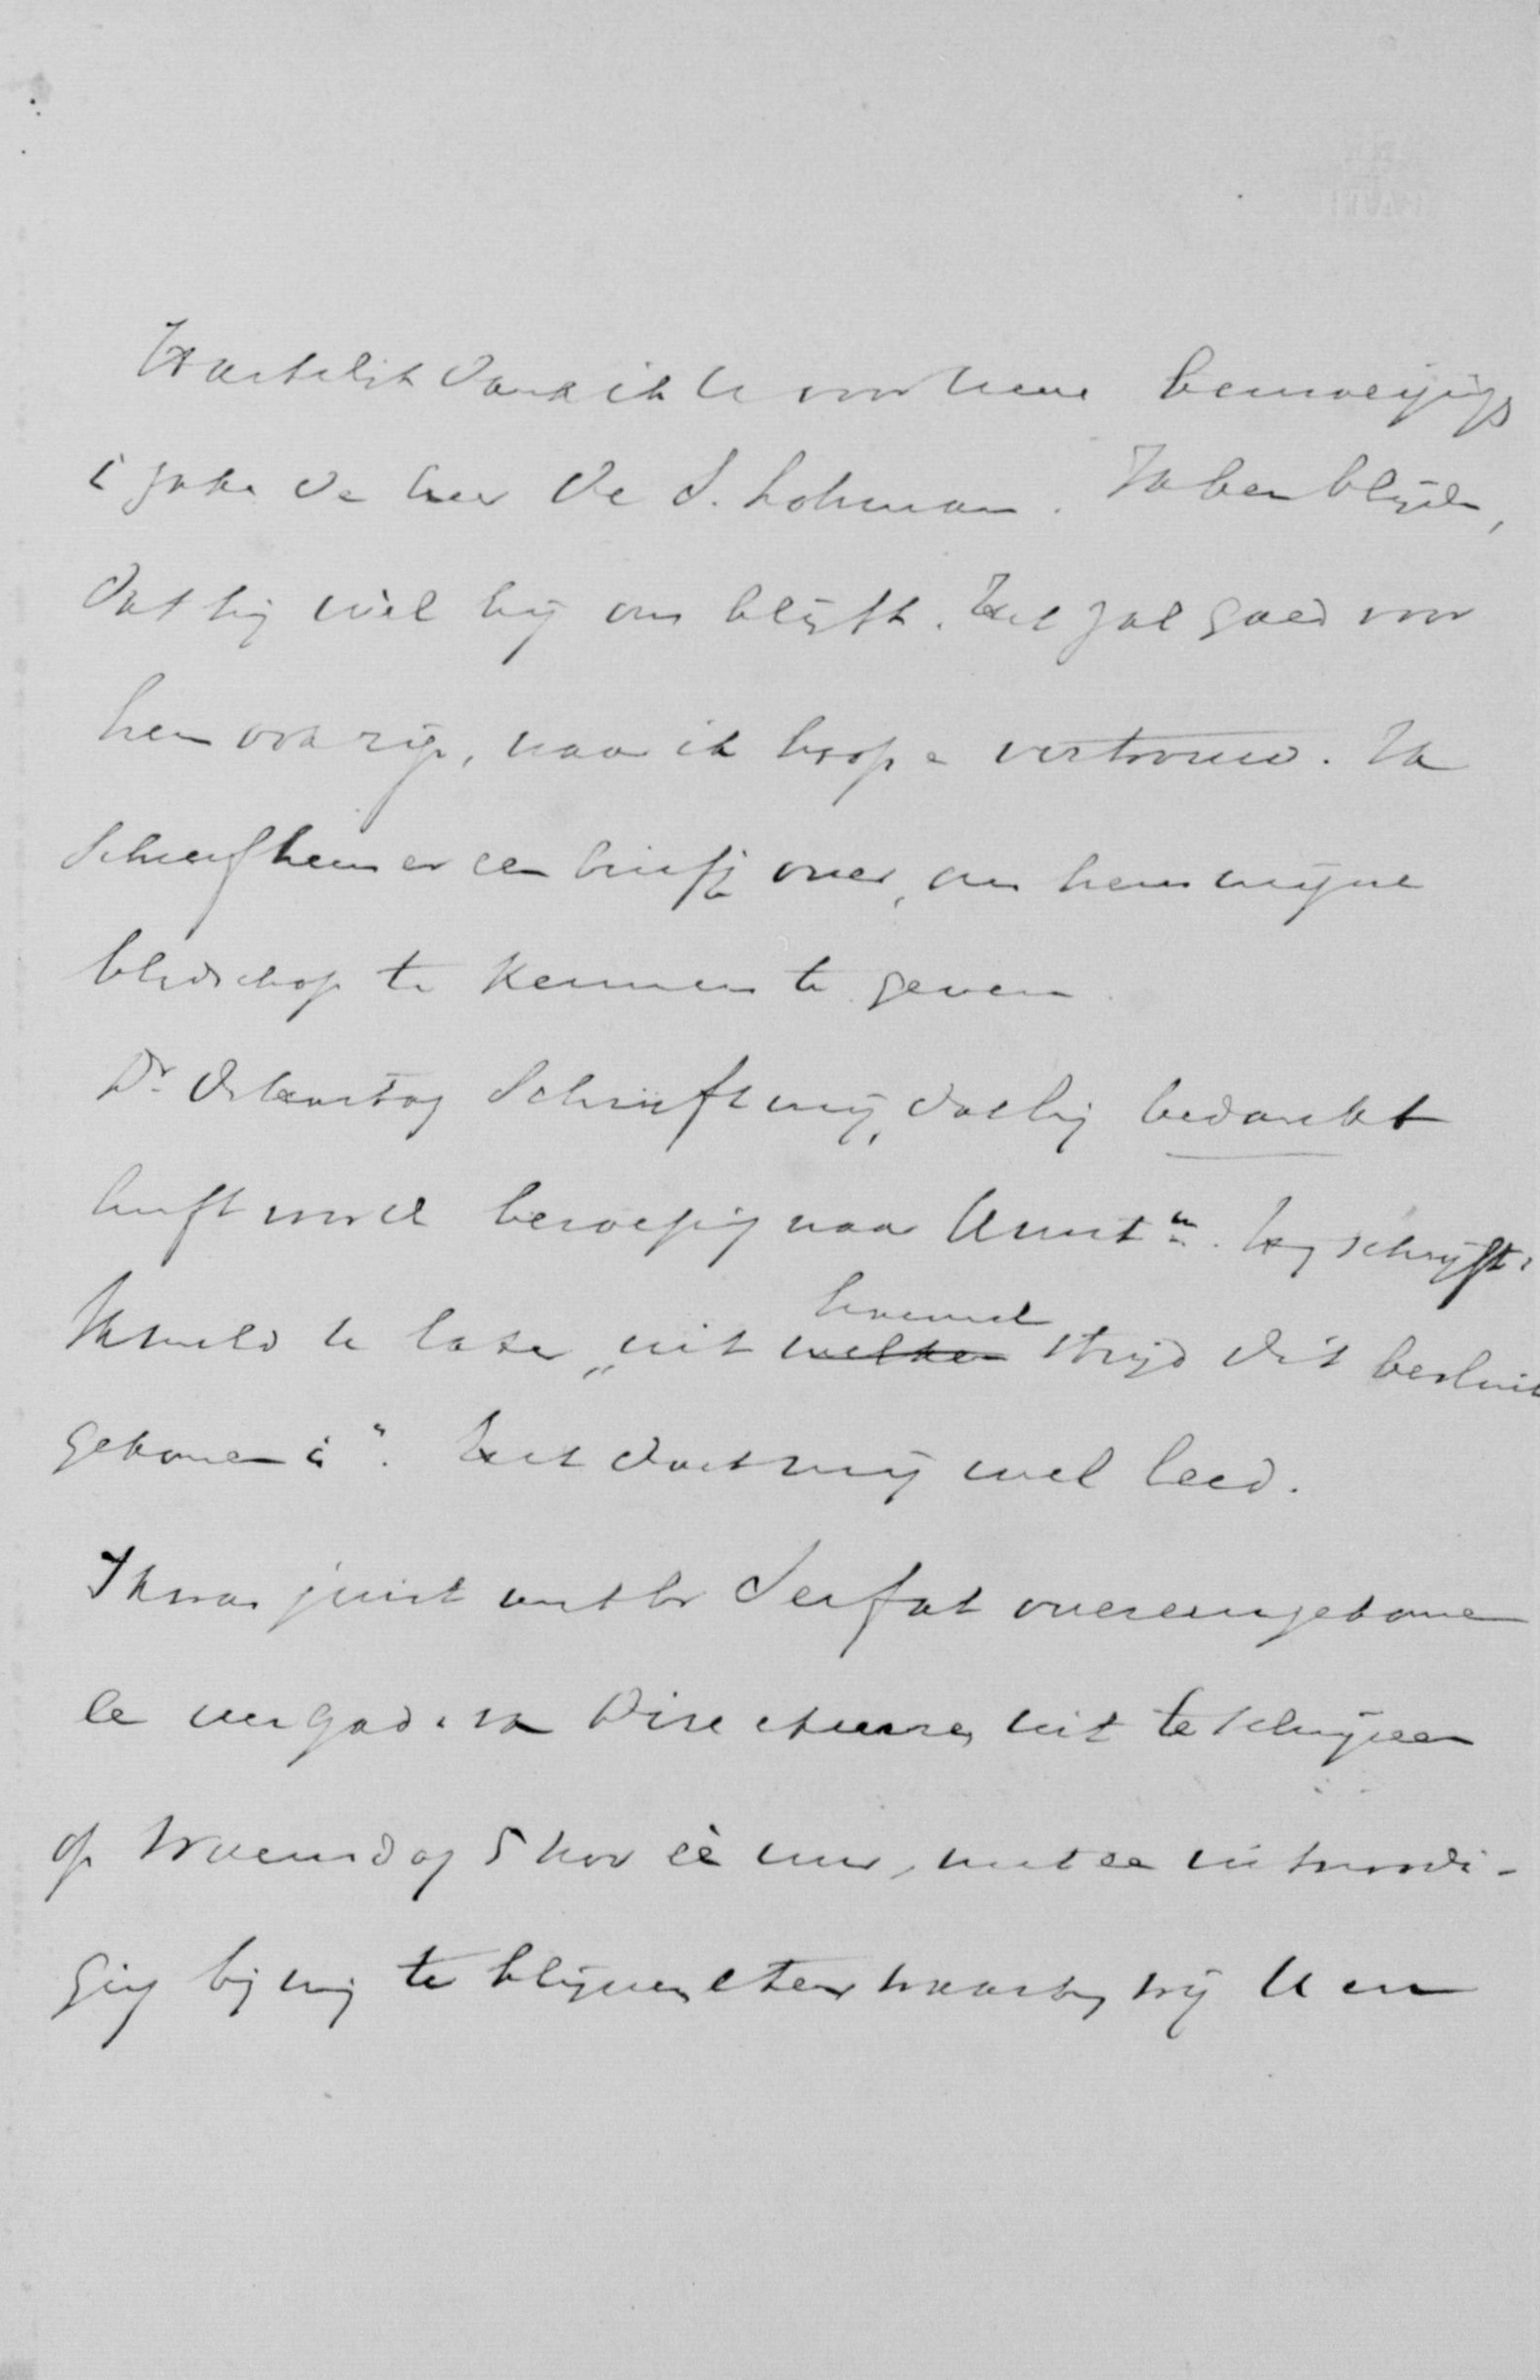 Hartelijk dank ik U voor Uwe bemoeijing
i zake de heer De S. Lohman. Ik ben blijde,
dat hij wèl bij ons blijft. Het zal goed voor
hem ook zijn, naar ik hoop e vertrouw. Ik
schreef hem er een briefje over, om hem mijne
blijdschap te kennen te geven.
Dr. schrijft mij, dat hij bedankt
heeft voor de beroeping naar Amstm. Hij schrijft:
Ik meld U later „uit hoeveel strijd dit besluit
gekomen is". Het doet mij wel leed.
Ik was juist met br Seefat overeengekome
ee vergad. va Directeuren uit te schrijven
op Woensdag 5 Nov éé uur, met ee uitnoodi-
ging bij mij te blijven eten waarbij wij U en